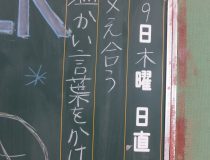 9日木曜 日直
え合う
かい言葉をかけ